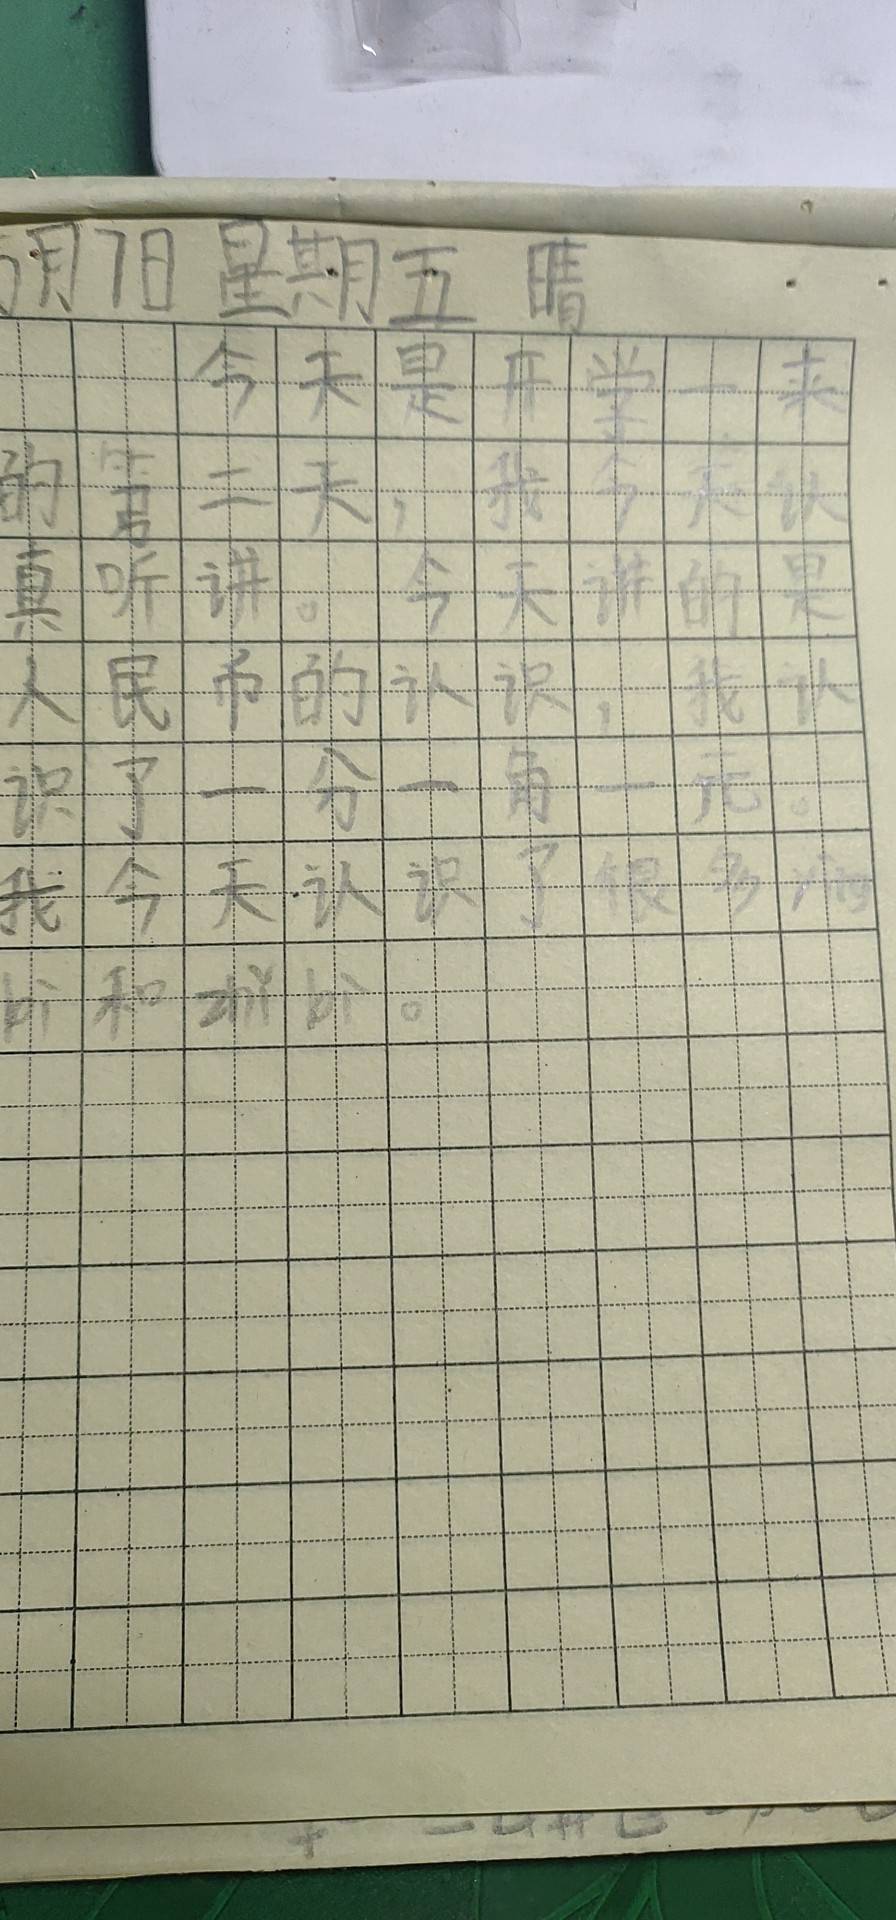 月7日 星期五 晴
今天是开学一来
的第二天，我今天认
真听讲。今天讲的是
人民币的认识，我认
识了一分一角一元。
我今天认识了很多
和